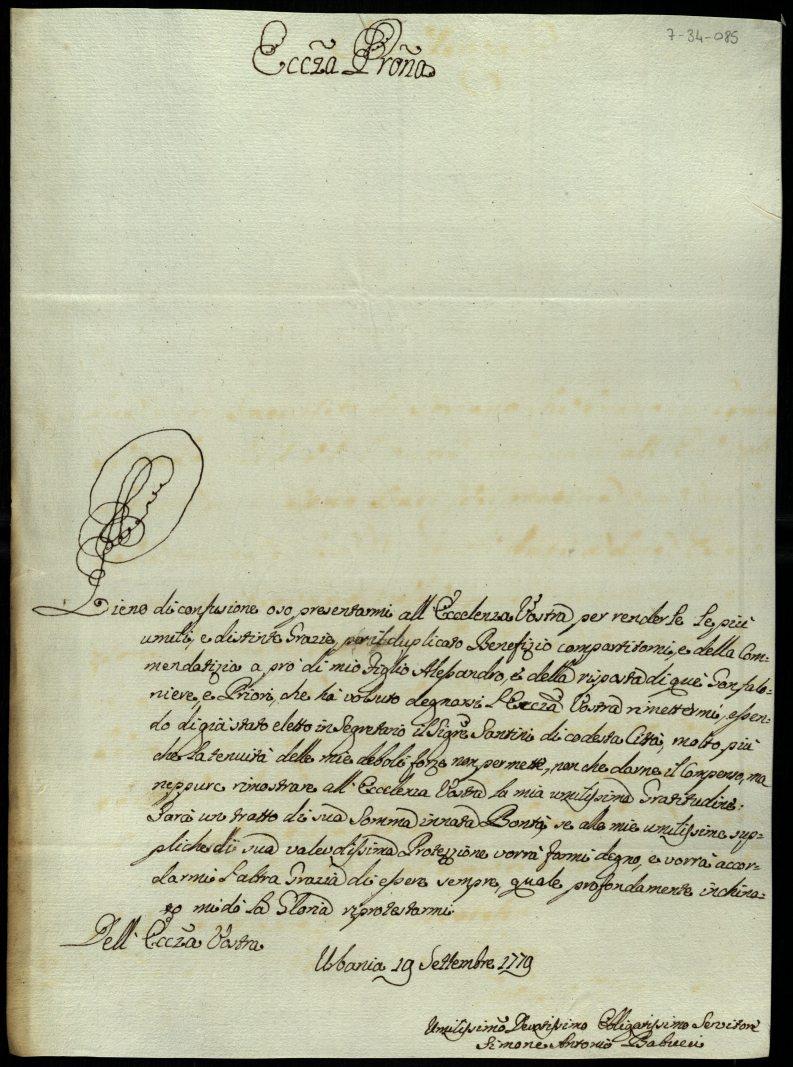 7-34-085
Eccza Proña
Pieno di confusione oso presentarmi all' Eccelenza Vostra per renderle le più
umili, e distinte Grazie, per il duplicato Benefizio compartitomi, e della Com=
mendatizia a prò di mio Figlio Alessandro, e della risposta di quei Gonfalo=
niere, e Priori, che hà voluto degnarsi l'Eccza Vostra rimettermi, essen=
do di già stato eletto in Segretario il Sigre Santini di codesta Città, molto più
che la tenuità delle mie deboli forze non permette, non che darne il Compenso, ma
neppure rimostrare all' Eccelenza Vostra la mia umilissima Gratitudine.
Sarà un tratto di sua Somma innata Bontà, se alle mie umilissime sup=
pliche di sua valevolissima Protezzione vorrà farmi degno, e vorrà accor=
darmi l'altra Grazia di essere sempre, quale profondamente inchina=
to mi dò la Gloria riprotestarmi
Dell' Eccza Vostra
Urbania 19 Settembre 1779
Umilissimo Devotissimo Obligatissimo Servitore
Simone Antonio Babucci